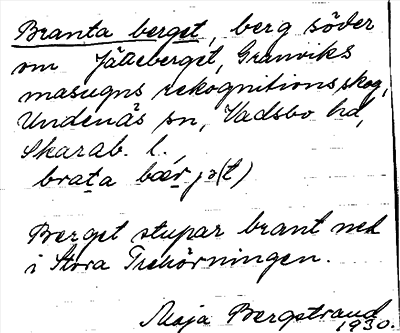 Branta berget, berg söder
om Jätteberget, Granviks
masugns rekognitionsskog,
Undenäs sn, Vadsbo hd,
Skarab. l.
brat̲a bær̲jə(t)
Berget stupar brant ned
i Stora Trehörningen.
Maja Bergstrand
1930.